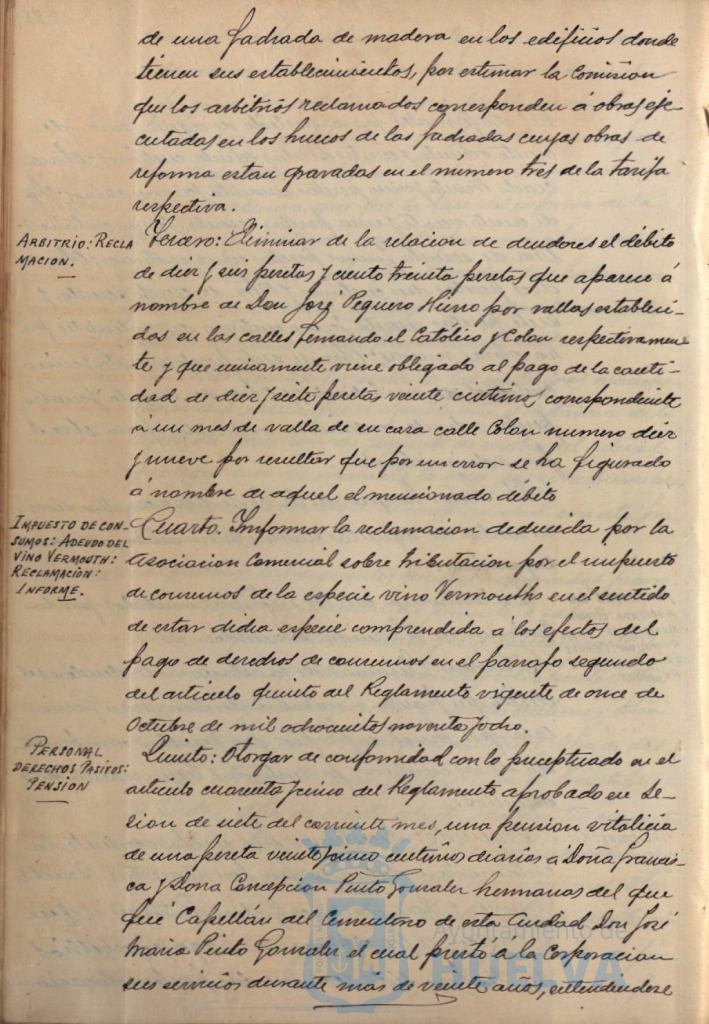 de una fachada de madera en los edificios donde
tienen sus establecimientos, por estimar la Comision
que los arbitrios reclamados corresponden á obras eje-
cutadas en los huecos de las fachadas cuyas obras de
reforma estan gravadas en el número tres de la tarifa
respectiva.
ARBITRIO: RECLA
MACION.
Tercero: Eliminar de la relacion de deudores el débito
de diez y seis pesetas y ciento treinta pesetas que aparece á
nombre de Don José Peguero Hierro por vallas estableci-
das en las calles Fernando el Católico y Colon respectivamen-
te y que unicamente viene obligado al pago de la canti-
dad de diez y siete pesetas veinte centimos, correspondiente
á un mes de valla de su casa calle Colon numero diez
y nueve por resultar que por un error se ha figurado
á nombre de aquel el mencionado débito
IMPUESTO DE CON-
SUMOS: ADEUDO DEL
VINO VERMOUTH:
RECLAMACION:
INFORME.
Cuarto. Informar la reclamacion deducida por la
Asociacion Comercial sobre tributacion por el impuesto
de consumos de la especie vino Vermouths en el sentido
de estar dicha especie comprendida á los efectos del
pago de derechos de consumos en el parrafo segundo
del articulo quinto del Reglamento vigente de once de
Octubre de mil ochocientos noventa y ocho.
PERSONAL
DERECHOS PASIVOS:
PENSION
Quinto: Otorgar de conformidad con lo preceptuado en el
articulo cuarenta y cinco del Reglamento aprobado en se-
sion de siete del corriente mes, una pension vitalicia
de una peseta veinte y cinco centimos diarios á Doña Francis-
ca y Doña Concepcion Pinto Gonzalez hermanas del que
fué Capellán del Cementerio de esta Ciudad Don José
Maria Pinto Gonzalez el cual prestó á la Corporacion
sus servicios durante mas de veinte años, entendiendose
Ayuntamiento de
HUELVA